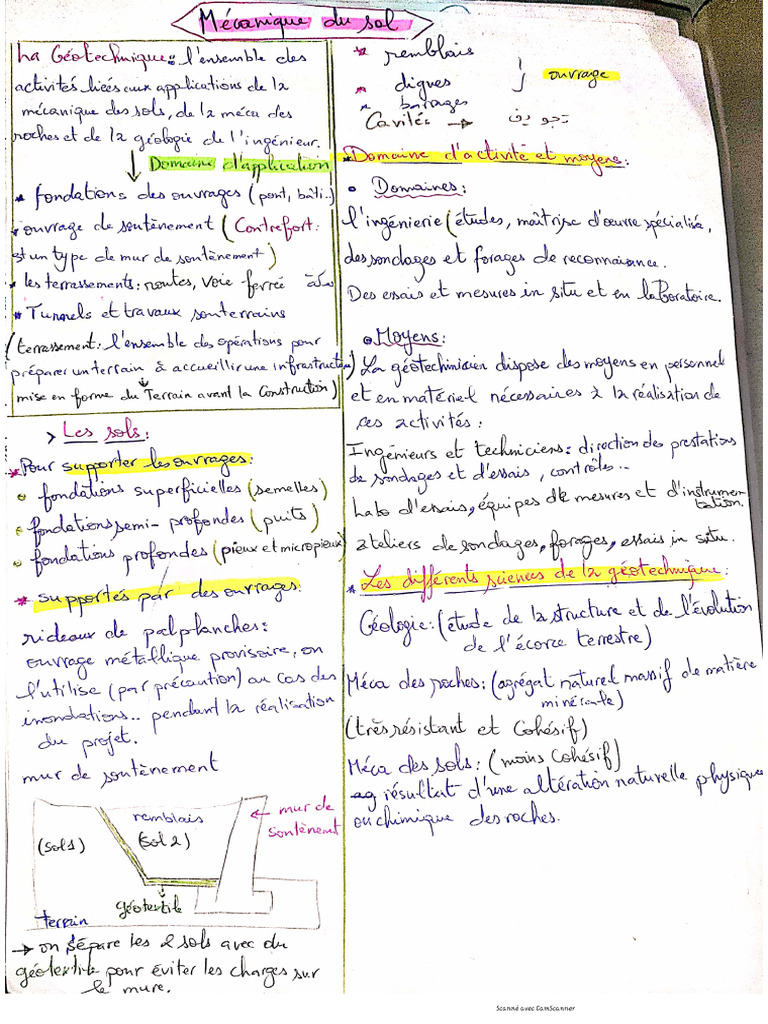 Mécanique du sol
La Géotechnique: l'ensemble des
activités liées aux applications de la
mécanique des sols, de la méca des
roches et de la géologie de l'ingénieur.
Domaine d'application
* fondations des ouvrages (pont, bâti..)
* ouvrage de soutènement (Contrefort:
est un type de mur de soutènement)
* les terrassements: routes, voie ferrée
* Tunnels et travaux souterrains
(terrassement: l'ensemble des opérations pour
préparer un terrain à accueillir une infrastructure)
mise en forme du Terrain avant la Construction)
> Les sols:
* Pour supporter les ouvrages:
fondations superficielles (semelles)
fondations semi-profondes (puits)
fondations profondes (pieux et micropieux)
* supportés par des ouvrages:
rideaux de palplanches:
ouvrage métallique provisoire, on
l'utilise (par précaution) au cas des
inondations.. pendant la réalisation
du projet.
mur de soutènement
remblais
(sol 1)
(sol 2)
← mur de
soutènement
géotextile
terrain
→ on sépare les 2 sols avec du
géotextile pour éviter les charges sur
le mure.
* remblais
* digues
* barages
ouvrage
Cavités → تجويف
* Domaine d'activité et moyens:
Domaines:
l'ingénierie (études, maîtrise d'œuvre spécialisé,
des sondages et forages de reconnaissance.
Des essais et mesures in situ et en laboratoire.
Moyens:
La géotechinicien dispose des moyens en personnel
et en matériel nécessaires à la réalisation de
ces activités:
Ingénieurs et techniciens: direction des prestations
de sondages et d'essais, contrôles..
Labo d'essais, équipes de mesures et d'instrumen-
tation.
ateliers de sondages, forages, essais in situ.
* Les différents sciences de la géotechnique:
Géologie: (étude de la structure et de l'évolution
de l'écorce terrestre)
Méca des roches: (agrégat naturel massif de matière
minérale)
(très résistant et Cohésif)
Méca des sols: (moins Cohésif)
résultat d'une altération naturelle physique
ou chimique des roches.
Scanné avec CamScanner